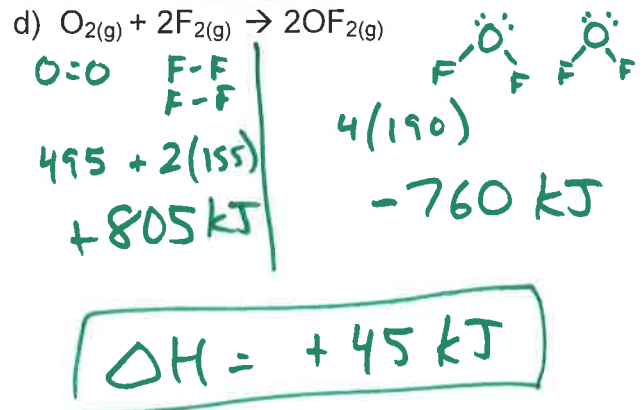 d) O₂₍g₎ + 2F₂₍g₎ → 2OF₂₍g₎
O=O F-F
F-F
495 + 2(155)
+805 kJ
O
F F
O
F F
4(190)
-760 kJ
ΔH = +45 kJ